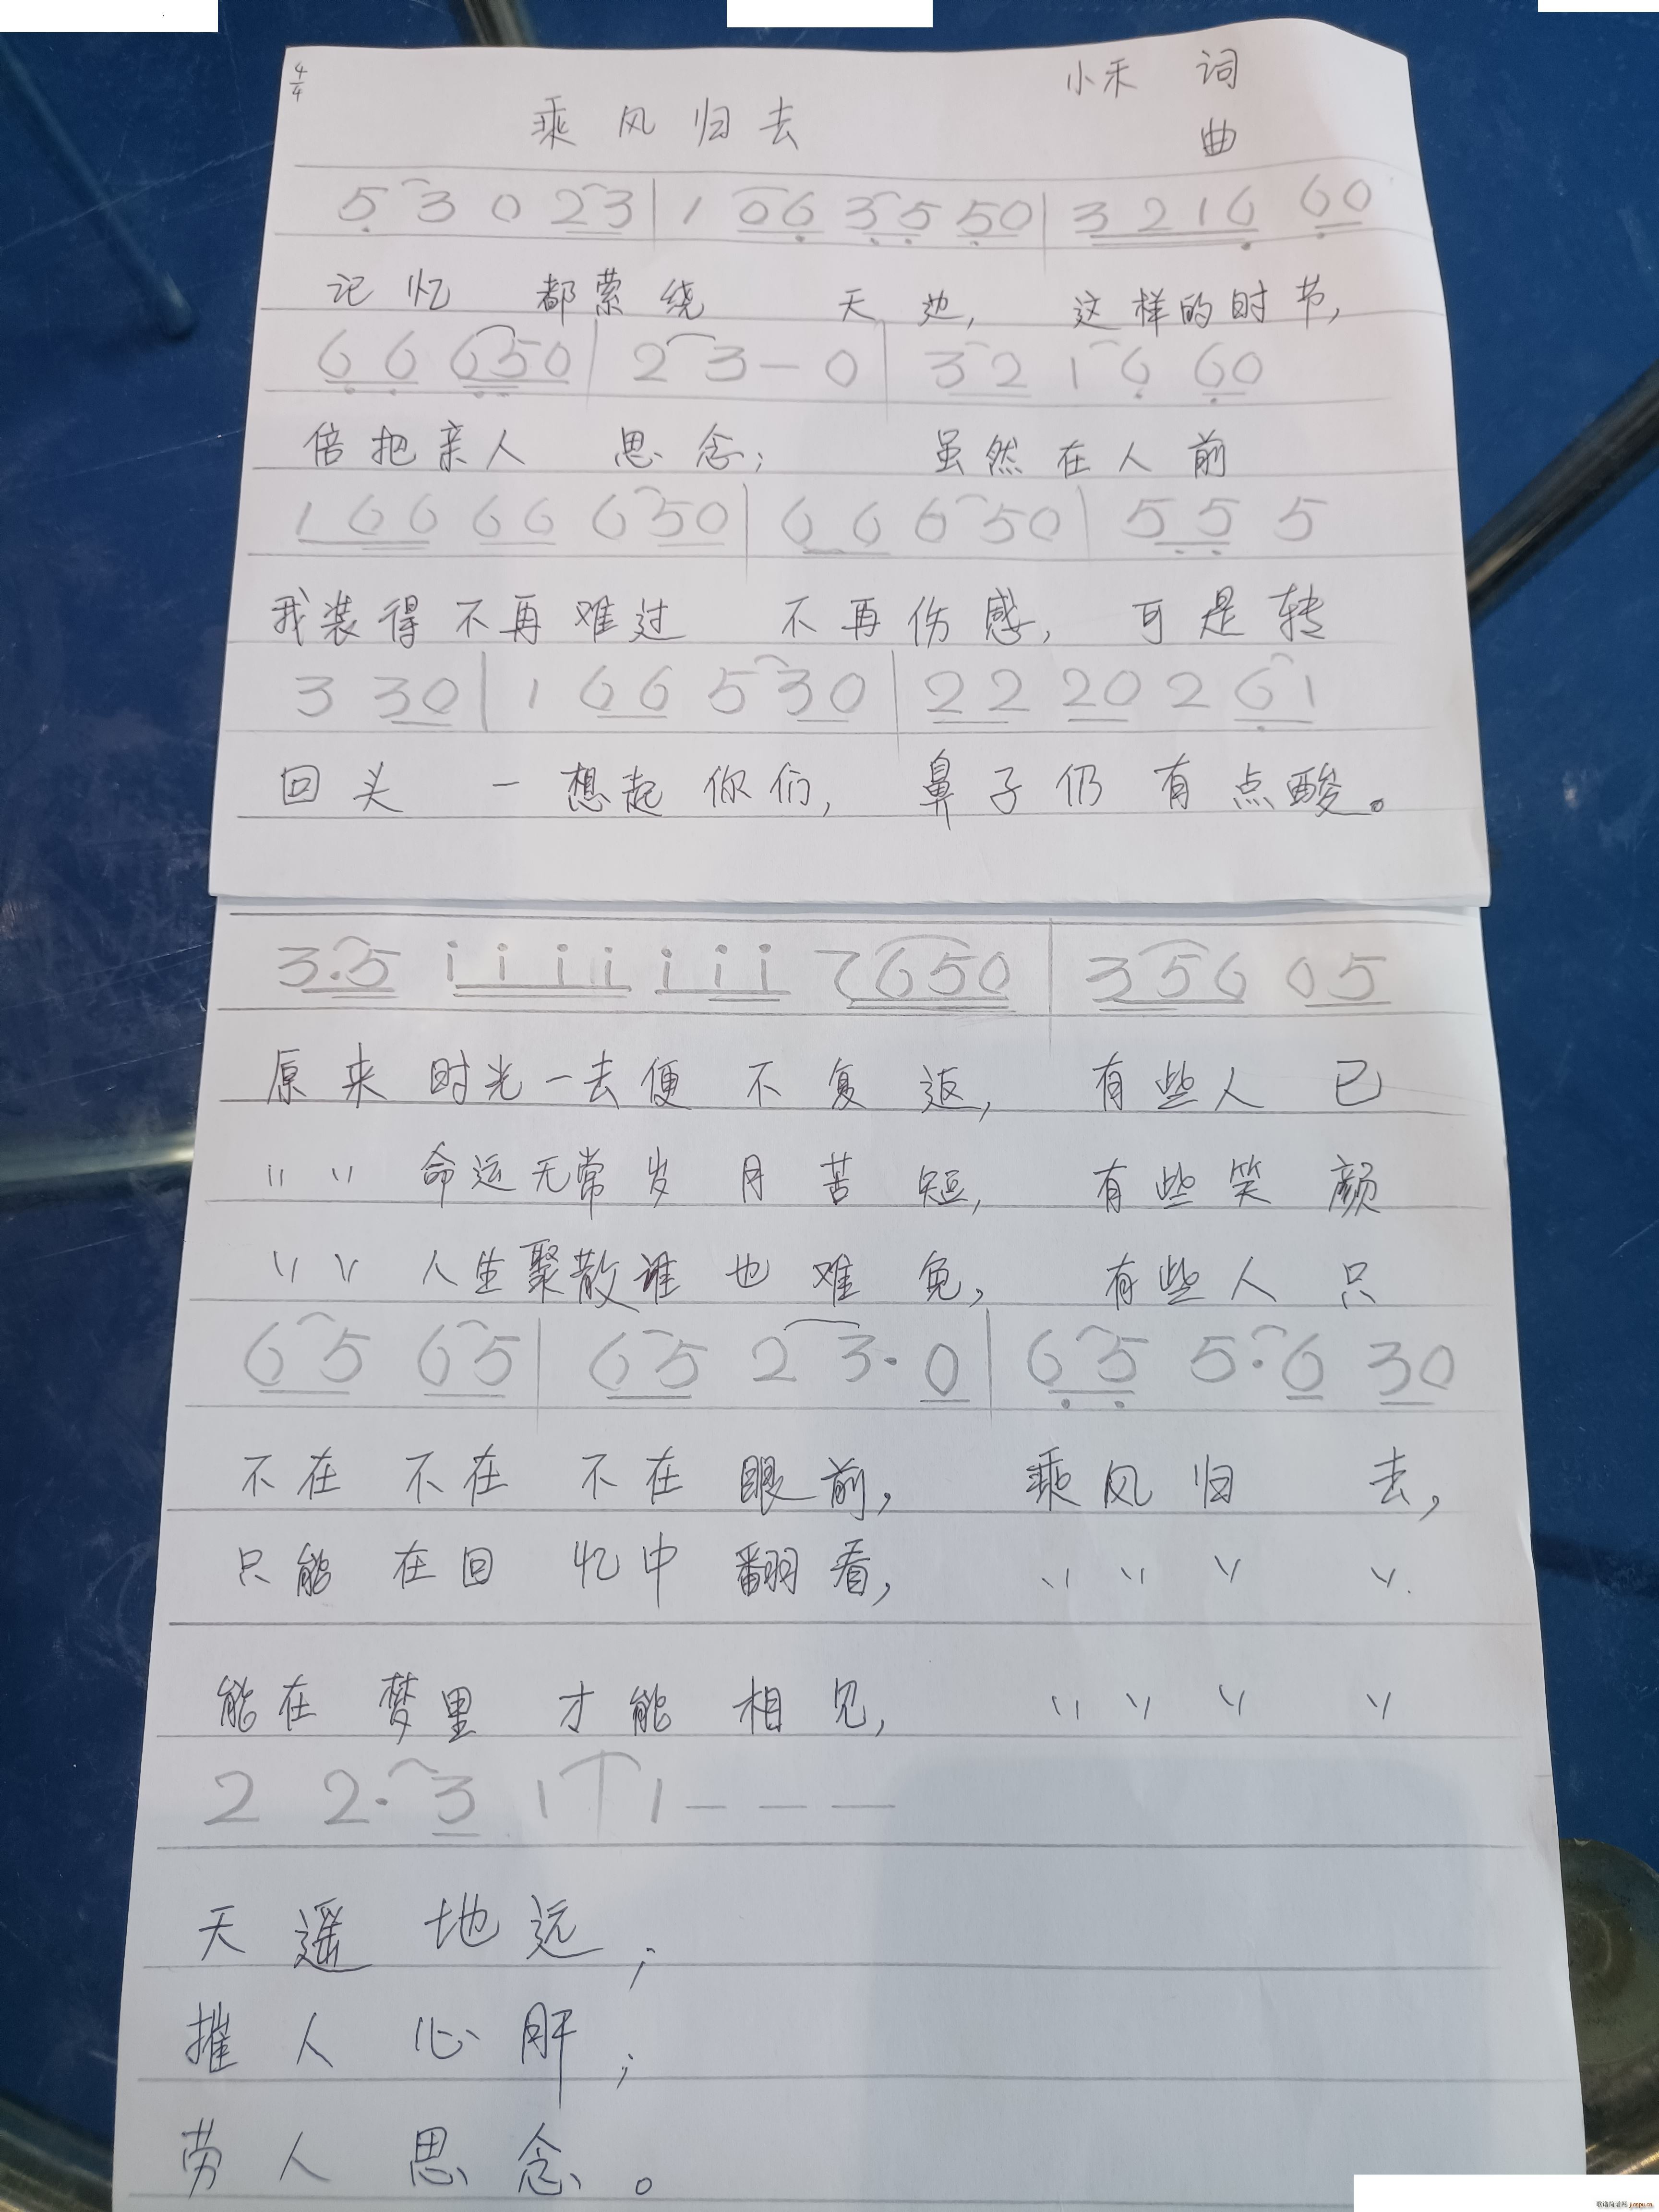 4/4
小禾 词
乘风归去
曲
5 3 0 2 3 | 1 0 6 3 5 5 0 | 3 2 1 6 6 0
记忆 都萦绕 天边, 这样的时节,
6 6 6 5 0 | 2 3 — 0 | 3 2 1 6 6 0
倍把亲人 思念; 虽然在人前
1 6 6 6 6 6 5 0 | 6 6 6 5 0 | 5 5 5
我装得不再难过 不再伤感, 可是转
3 3 0 | 1 6 6 5 3 0 | 2 2 2 0 2 6 1
回头 一想起你们, 鼻子仍有点酸。
3·5 i i i i i i i 7 6 5 0 | 3 5 6 0 5
原来时光一去便不复返, 有些人已
〃 〃 命运无常岁月苦短, 有些笑颜
〃 〃 人生聚散谁也难免, 有些人只
6 5 6 5 | 6 5 2 3· 0 | 6 5 5·6 3 0
不在不在不在眼前, 乘风归去,
只能在回忆中翻看, 〃 〃 〃 〃
能在梦里才能相见, 〃 〃 〃 〃
2 2· 3 1 | 1 — — —
天遥地远;
摧人心肝;
劳人思念。
歌谱简谱网 jianpu.cn